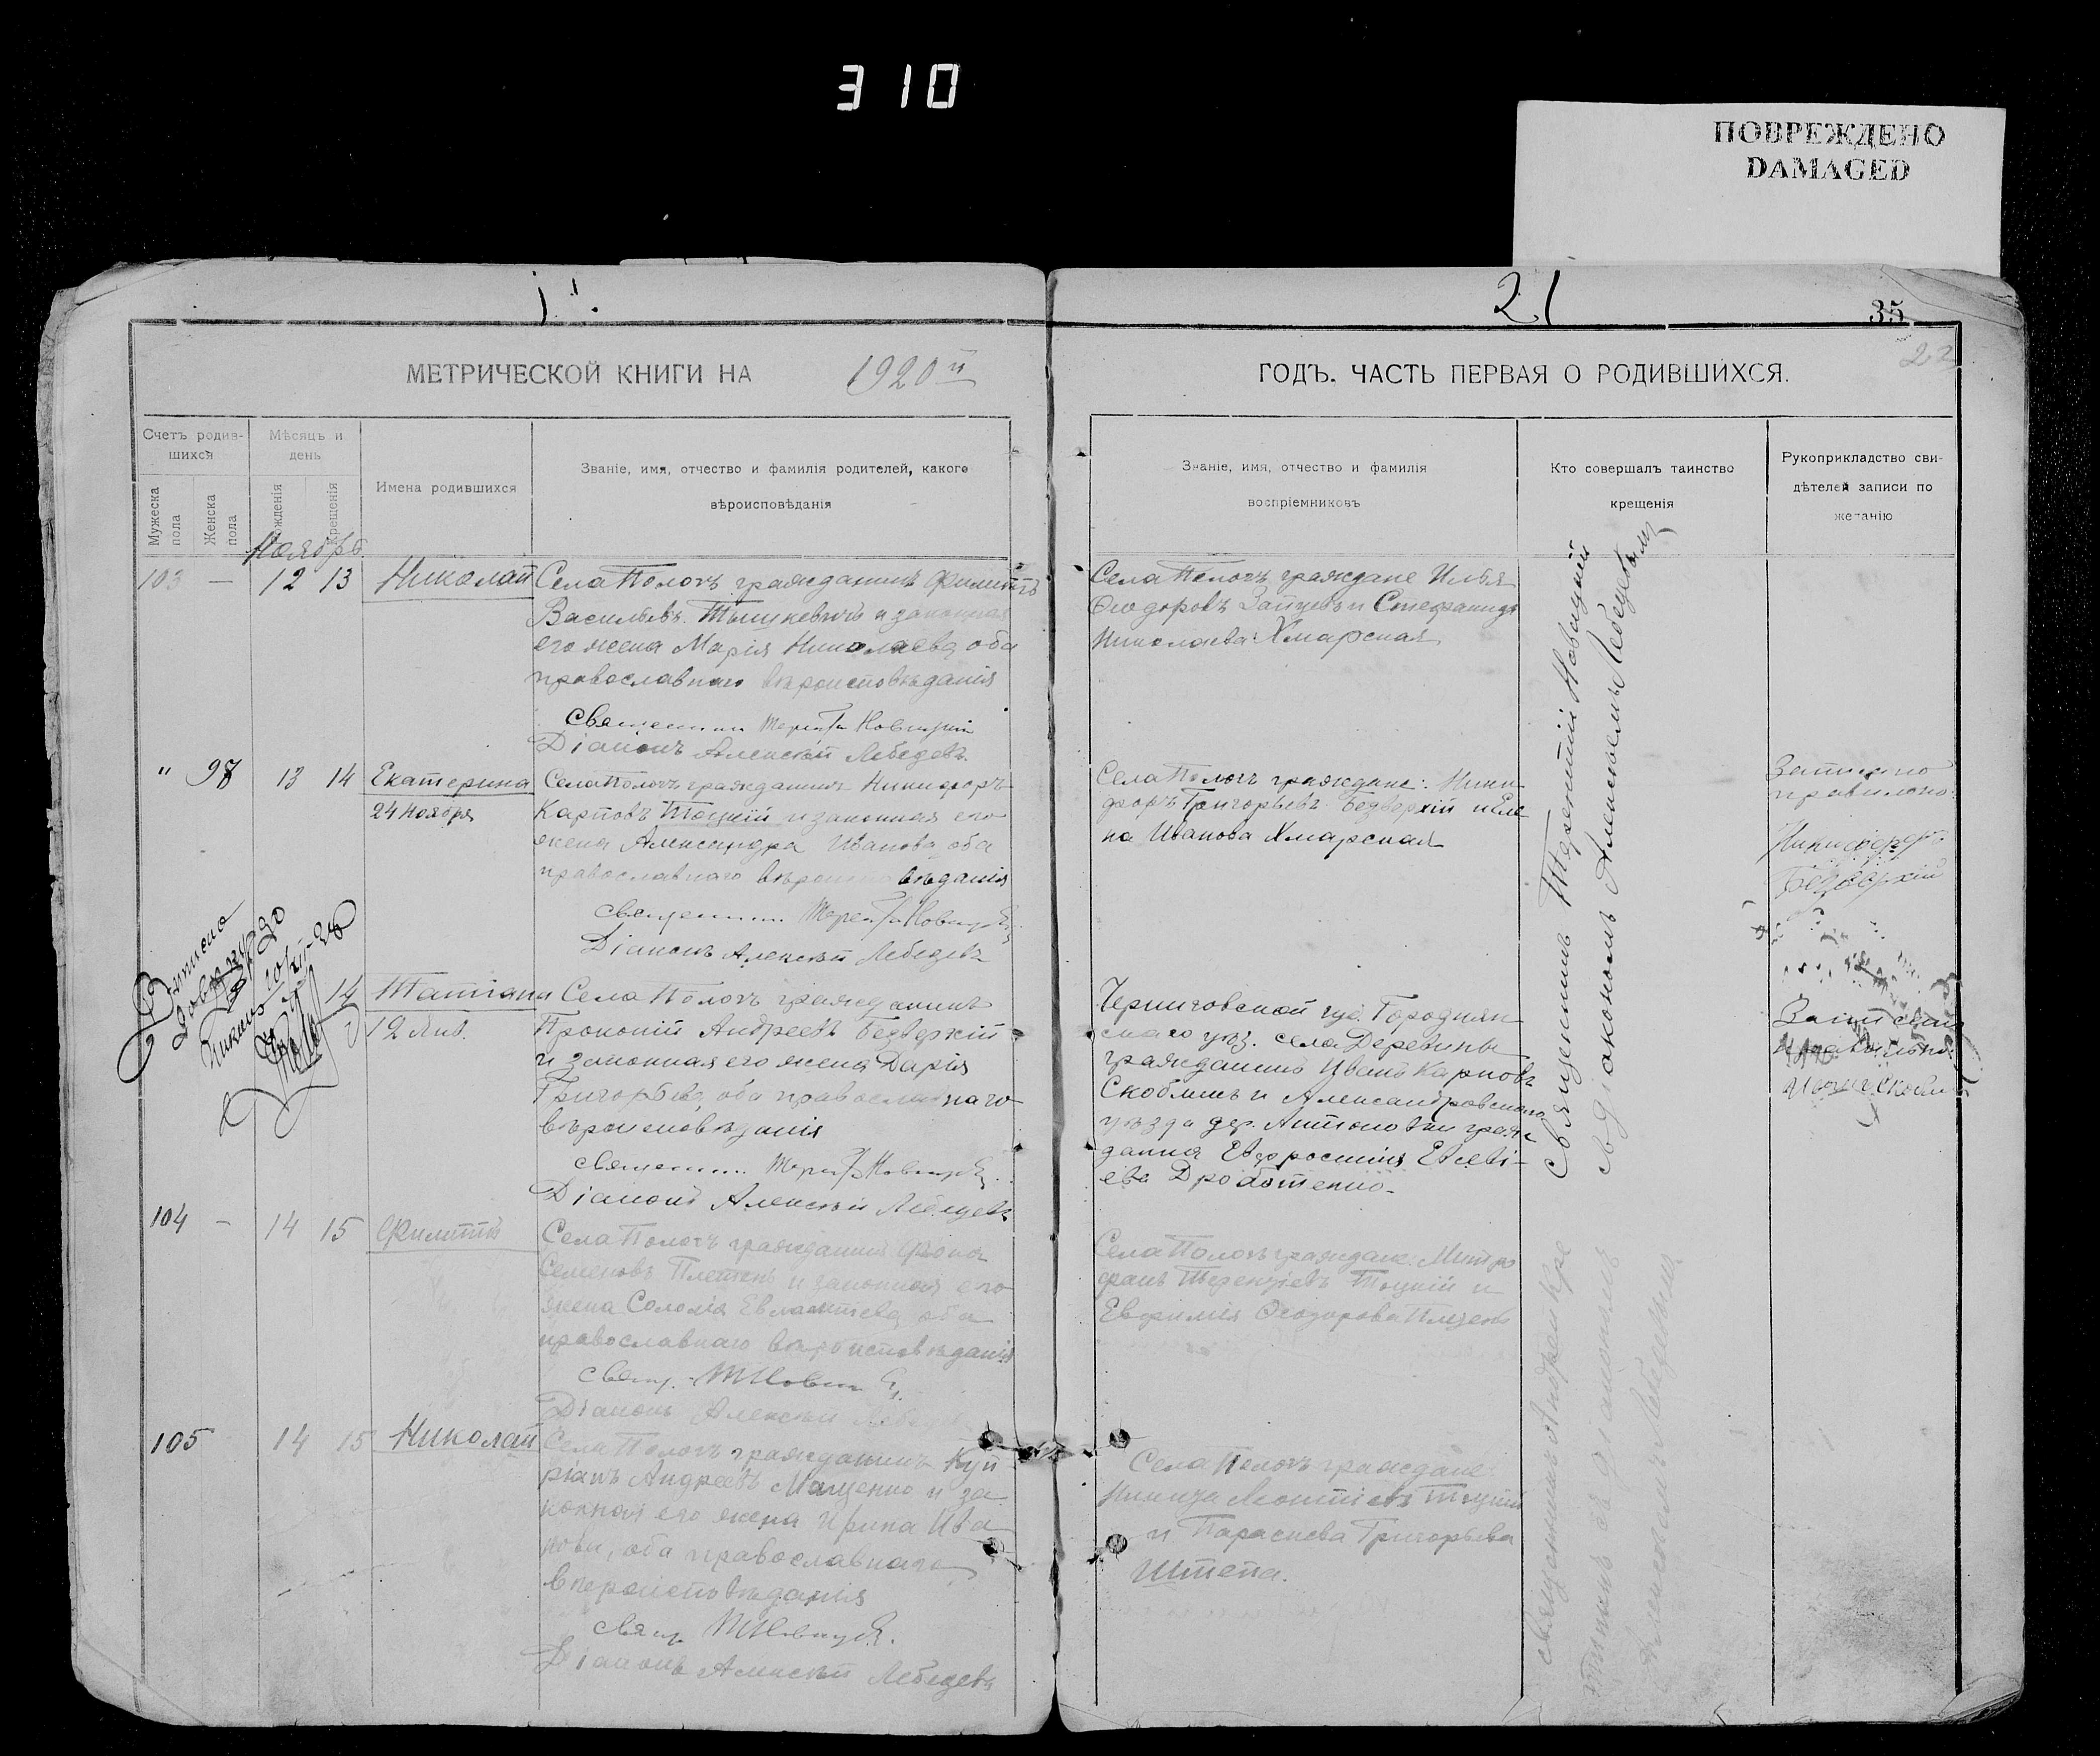 310
ПОВРЕЖДЕНО
DAMAGED
21
35
22
МЕТРИЧЕСКОЙ КНИГИ НА 1920 й
ГОДЪ. ЧАСТЬ ПЕРВАЯ О РОДИВШИХСЯ.
Счетъ родив-
шихся
Мужеска пола
Женска пола
Мѣсяцъ и
день
рожденія
крещенія
Имена родившихся
Званіе, имя, отчество и фамилія родителей, какого
вѣроисповѣданія
Званіе, имя, отчество и фамилія
воспріемниковъ
Кто совершалъ таинство
крещенія
Рукоприкладство сви-
дѣтелей записи по
желанію
Ноябрь
103 — 12 13 Николай
Села Пологъ гражданинъ Филиппъ
Васильевъ Тышкевичъ и законная
его жена Марія Николаева, оба
православнаго вѣроисповѣданія
Священникъ Новицкій
Діаконъ Алексѣй Лебедевъ
Села Пологъ граждане Илья
Ѳеодоровъ Зайцевъ и Стефанида
Николаева Хмарская
" 98 13 14 Екатерина
24 Ноября
Села Пологъ гражданинъ Никифоръ
Карповъ Тоцкій и законная его
жена Александра Иванова, оба
православнаго вѣроисповѣданія
Священникъ Новицкій
Діаконъ Алексѣй Лебедевъ
Села Пологъ граждане: Ники-
форъ Григорьевъ Безверхій и Еле-
на Иванова Хмарская
Записано
правильно
Никифоръ
Безверхій
14 Татіана
12 Янв.
Села Пологъ гражданинъ
Прокопій Андреевъ Безверхій
и законная его жена Дарія
Григорьева, оба православнаго
вѣроисповѣданія
Священникъ Новицкій
Діаконъ Алексѣй Лебедевъ
Черниговской губ. Городнян-
скаго уѣз. села Деревины
гражданинъ Иванъ Карповъ
Скоблинъ и Александровскаго
уѣзда дер. Антоновки граж-
данка Евфросинія Евсеві-
ева Дроботенко.
Записано
правильно
104 — 14 15 Филиппъ
Села Пологъ гражданинъ Фока
Семеновъ Плетень и законная его
жена Соломія Евлампіева, оба
православнаго вѣроисповѣданія
Свящ. Т Новицкій
Діаконъ Алексѣй Лебедевъ
Села Пологъ граждане: Митро
фанъ Терентіевъ Тоцкій и
Евфимія Ѳеодорова
105 14 15 Николай
Села Пологъ гражданинъ Куп
ріанъ Андреевъ Мащенко и за
конная его жена Ирина Ива
нова, оба православнаго
вѣроисповѣданія
Свящ. Т Новицкій.
Діаконъ Алексѣй Лебедевъ
Села Пологъ граждане
Никита Леонтіевъ Тоцкій
и Параскева Григорьева
Штепа.
Священникъ Терентій Новицкій
съ діакономъ Алексѣемъ Лебедевымъ
Священникъ Андрей
съ діакономъ
Алексѣемъ Лебедевымъ